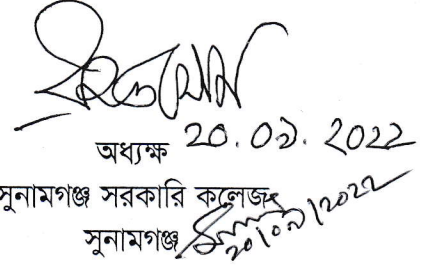 অধ্যক্ষ 20.09.2022
সুনামগঞ্জ সরকারি কলেজ
সুনামগঞ্জ 20/09/2022